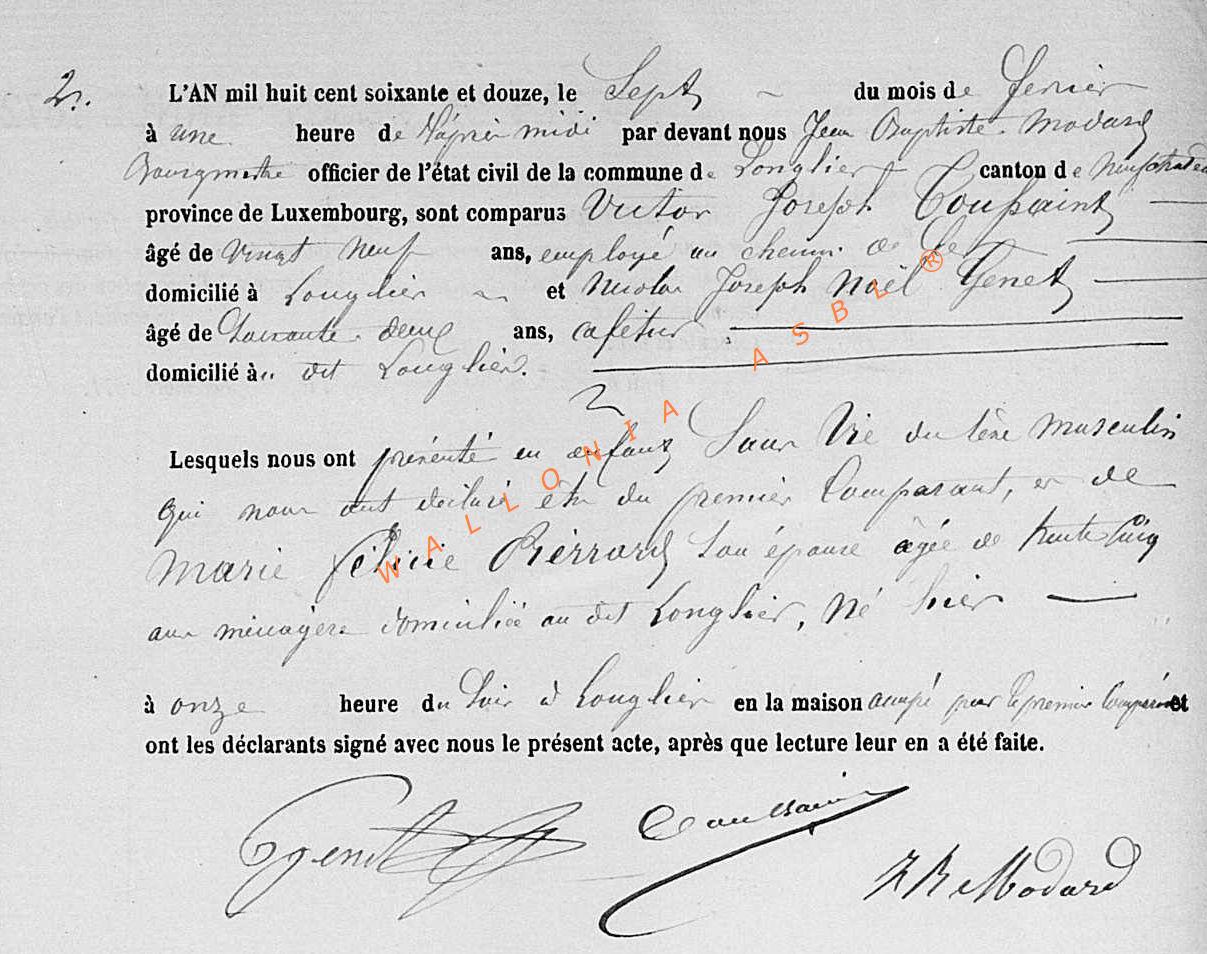 2.
L'AN mil huit cent soixante et douze, le Sept du mois de fevrier
à une heure de l'après midi par devant nous Jean Baptiste Modard
Bourgmestre officier de l'état civil de la commune de Longlier canton de Neufchateau
province de Luxembourg, sont comparus Victor Joseph Toussaint
âgé de vingt neuf ans, employé au chemin de fer
domicilié à Longlier et Nicolas Joseph Noël Genet
âgé de Soixante deux ans, cafetier
domicilié à dit Longlier.
Lesquels nous ont présenté un enfant Sans Vie du sexe masculin
qui nous ont déclaré être du premier Comparant, et de
Marie Félicie Pierrard son épouse âgée de trente cinq
ans ménagère domiciliée au dit Longlier, né hier
à onze heure du Soir à Longlier en la maison occupé par le premier Comparant et
ont les déclarants signé avec nous le présent acte, après que lecture leur en a été faite.
Genet Toussaint
JB Modard
WALLONIA ASBL ®